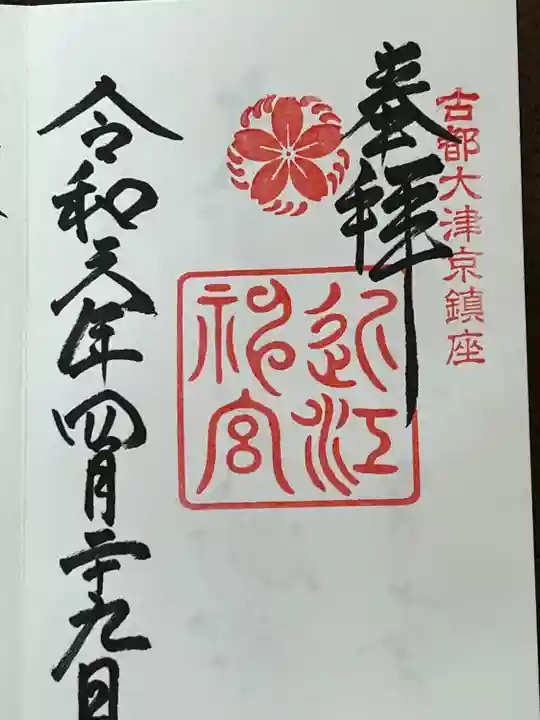 古都大津京鎮座
奉拝
近江
神宮
令和元年四月二十九日